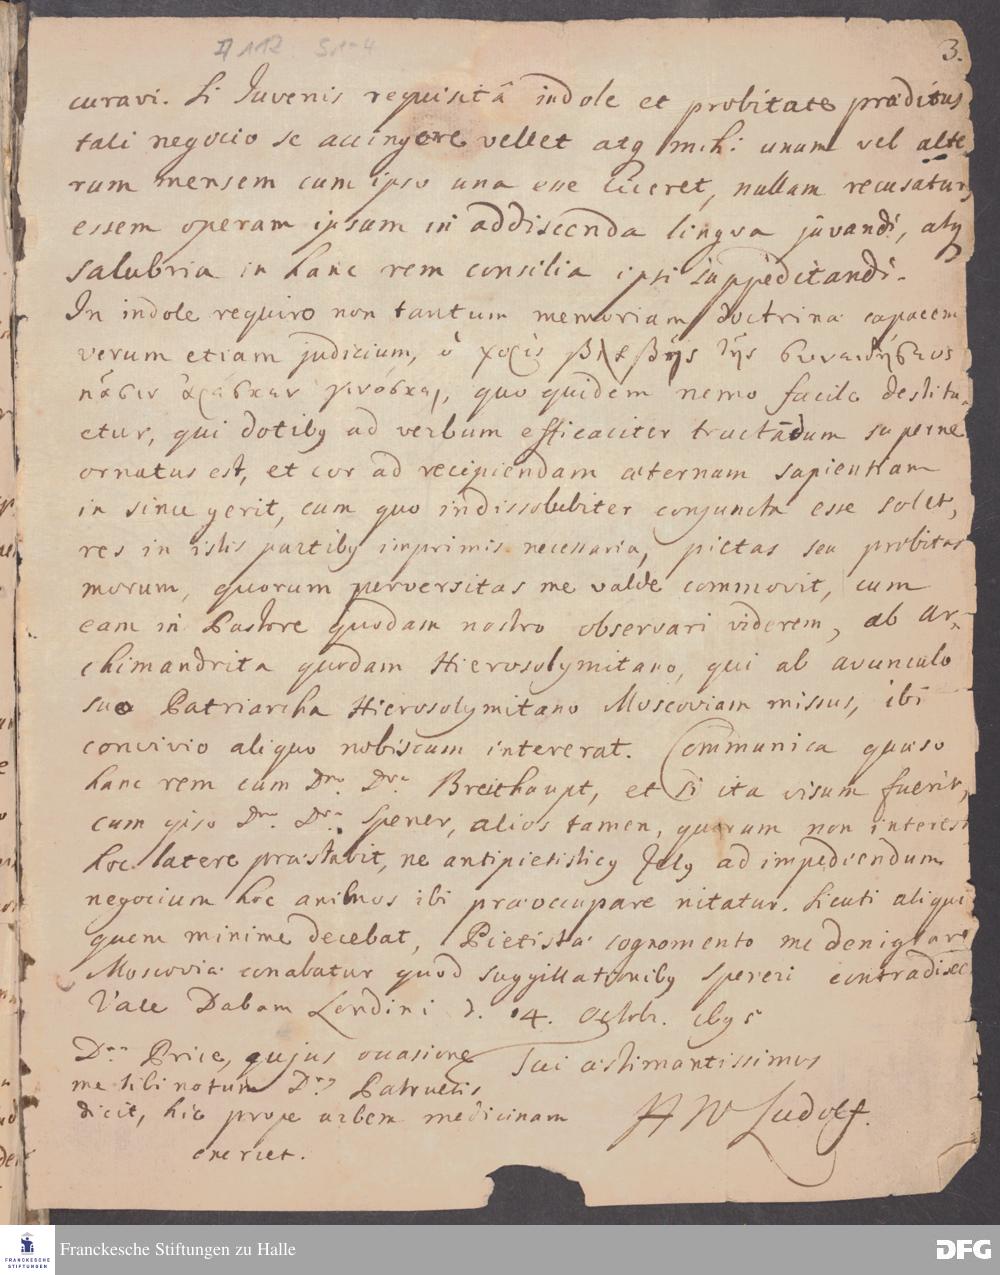 II 112 S 1-4
3.
curavi. Si Juvenis requisitâ indole et probitate præditus
tali negocio se accingere vellet atq mihi unum vel alte
rum mensem cum ipso una esse liceret, nullam recusaturus
essem operam ipsum in addiscenda lingva juvandi, atq
salubria in hanc rem consilia ipsi suppeditandi.
In indole requiro non tantum memoriam doctrinæ capacem
verum etiam judicium, ὁ χορὶς βλάβης τῆς συνειδήσεως
πᾶσιν ἀρέσκειν, quo quidem nemo facile destitu-
etur, qui dotibq ad verbum efficaciter tractandum superne
ornatus est, et cor ad recipiendam æternam sapientiam
in sinu gerit, cum quo indissolubiter conjuncta esse solet,
res in istis partibq imprimis necessaria, pietas seu probitas
morum, quorum perversitas me valde commovit, cum
eam in Pastore quodam nostro observari viderem, ab Ar-
chimandrita quodam Hierosolymitano, qui ab avunculo
suo Patriarcha Hierosolymitano Moscoviam missus, ibi
convivio aliquo nobiscum intererat. Communica quæso
hanc rem cum Dno. Dre. Breithaupt, et si ita visum fuerit,
cum ipso Dn. Dr. Spener, alios tamen, quorum non interest
hoc latere præstabit, ne antipietisticq Zelq ad impediendum
negocium hoc animos ibi præoccupare nitatur. Sicuti aliqui
quem minime decebat, Pietistæ cognomento me denigrare
Moscoviæ conabatur quod suggillationibq Speneri contradixe
Vale Dabam Londini d. 4. Octobr. 1695
Dnus Price, qujus occasione
Tui æstimantissimus
me tibi notum Dns Patruelis
dicit, hic prope urbem medicinam
HW Ludolf.
exercet.
FRANCKESCHE STIFTUNGEN
Franckesche Stiftungen zu Halle
DFG